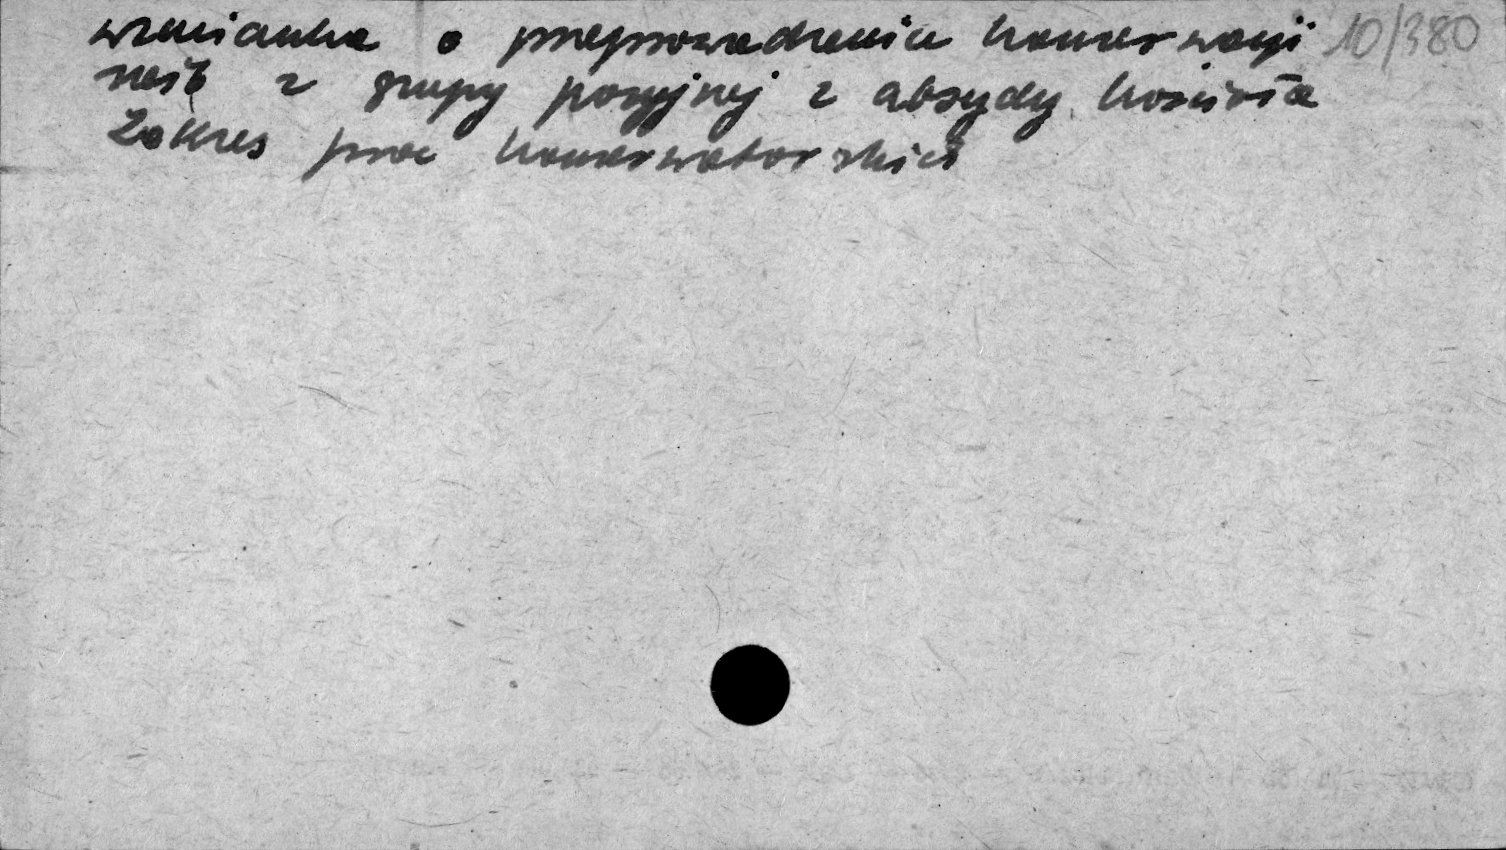 wzmianka o przeprowadzeniu konserwacji 10/380
rzeźb z grupy pasyjnej z absydy kościoła
Zakres prac konserwatorskich